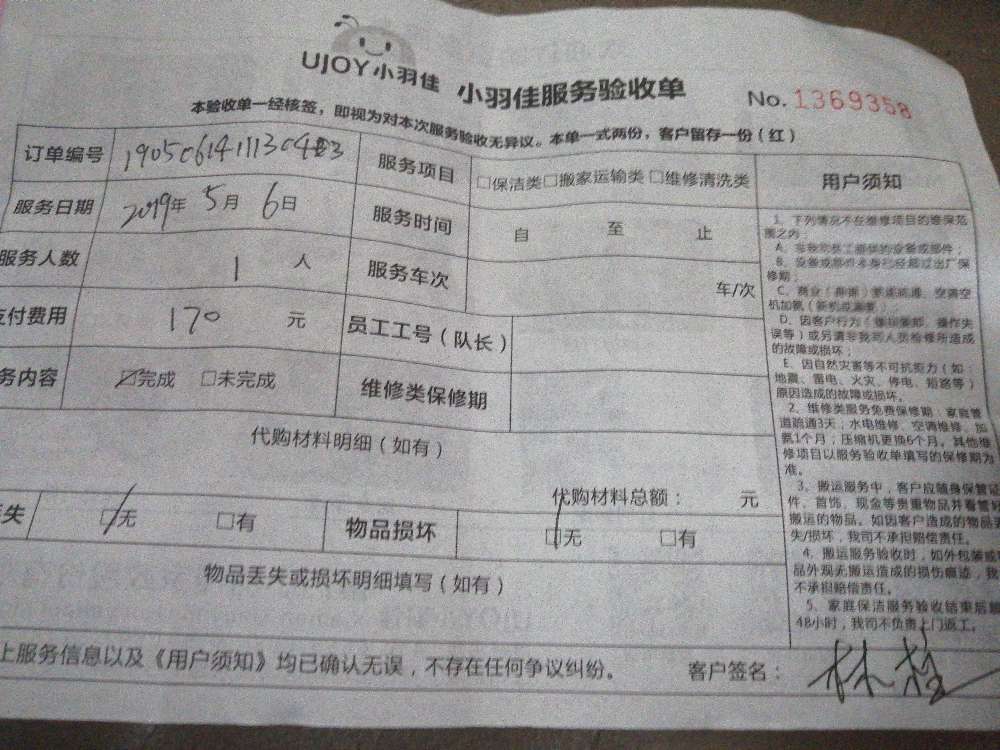 UJOY小羽佳 小羽佳服务验收单 No.1369358
本验收单一经核签，即视为对本次服务验收无异议。本单一式两份，客户留存一份（红）
订单编号 服务项目 □保洁类□搬家运输类□维修清洗类
服务日期 2019年5月6日 服务时间 自 至 止
服务人数 1人 服务车次 车/次
支付费用 170元 员工工号（队长）
务内容 ☑完成 □未完成 维修类保修期
代购材料明细（如有）
代购材料总额： 元
失 ☑无 □有 物品损坏 ☑无 □有
物品丢失或损坏明细填写（如有）
上服务信息以及《用户须知》均已确认无误，不存在任何争议纠纷。 客户签名：
用户须知
1、下列情况不在维修项目的维保范
围之内：
修期；
D、因客户行为
失等）或另请非我司人员检修所造成
的故障或损坏；
E、因自然灾害等不可抗拒力（如：
地震、雷电、火灾、停电、短路等）
原因造成的故障或损坏。
2、维修类服务免费保修期：家庭管
道疏通3天；水电维修、空调维修、加
氨1个月；压缩机更换6个月。其他维
修项目以服务验收单填写的保修期为
准。
3、搬运服务中，客户应随身保管证
件、首饰、现金等贵重物品并看管好
搬运的物品。如因客户造成的物品丢
失/损坏，我司不承担赔偿责任。
4、搬运服务验收时，如外包装或物
品外观无搬运造成的损伤痕迹，我
不承担赔偿责任。
5、家庭保洁服务验收结束后超
48小时，我司不负责上门返工。